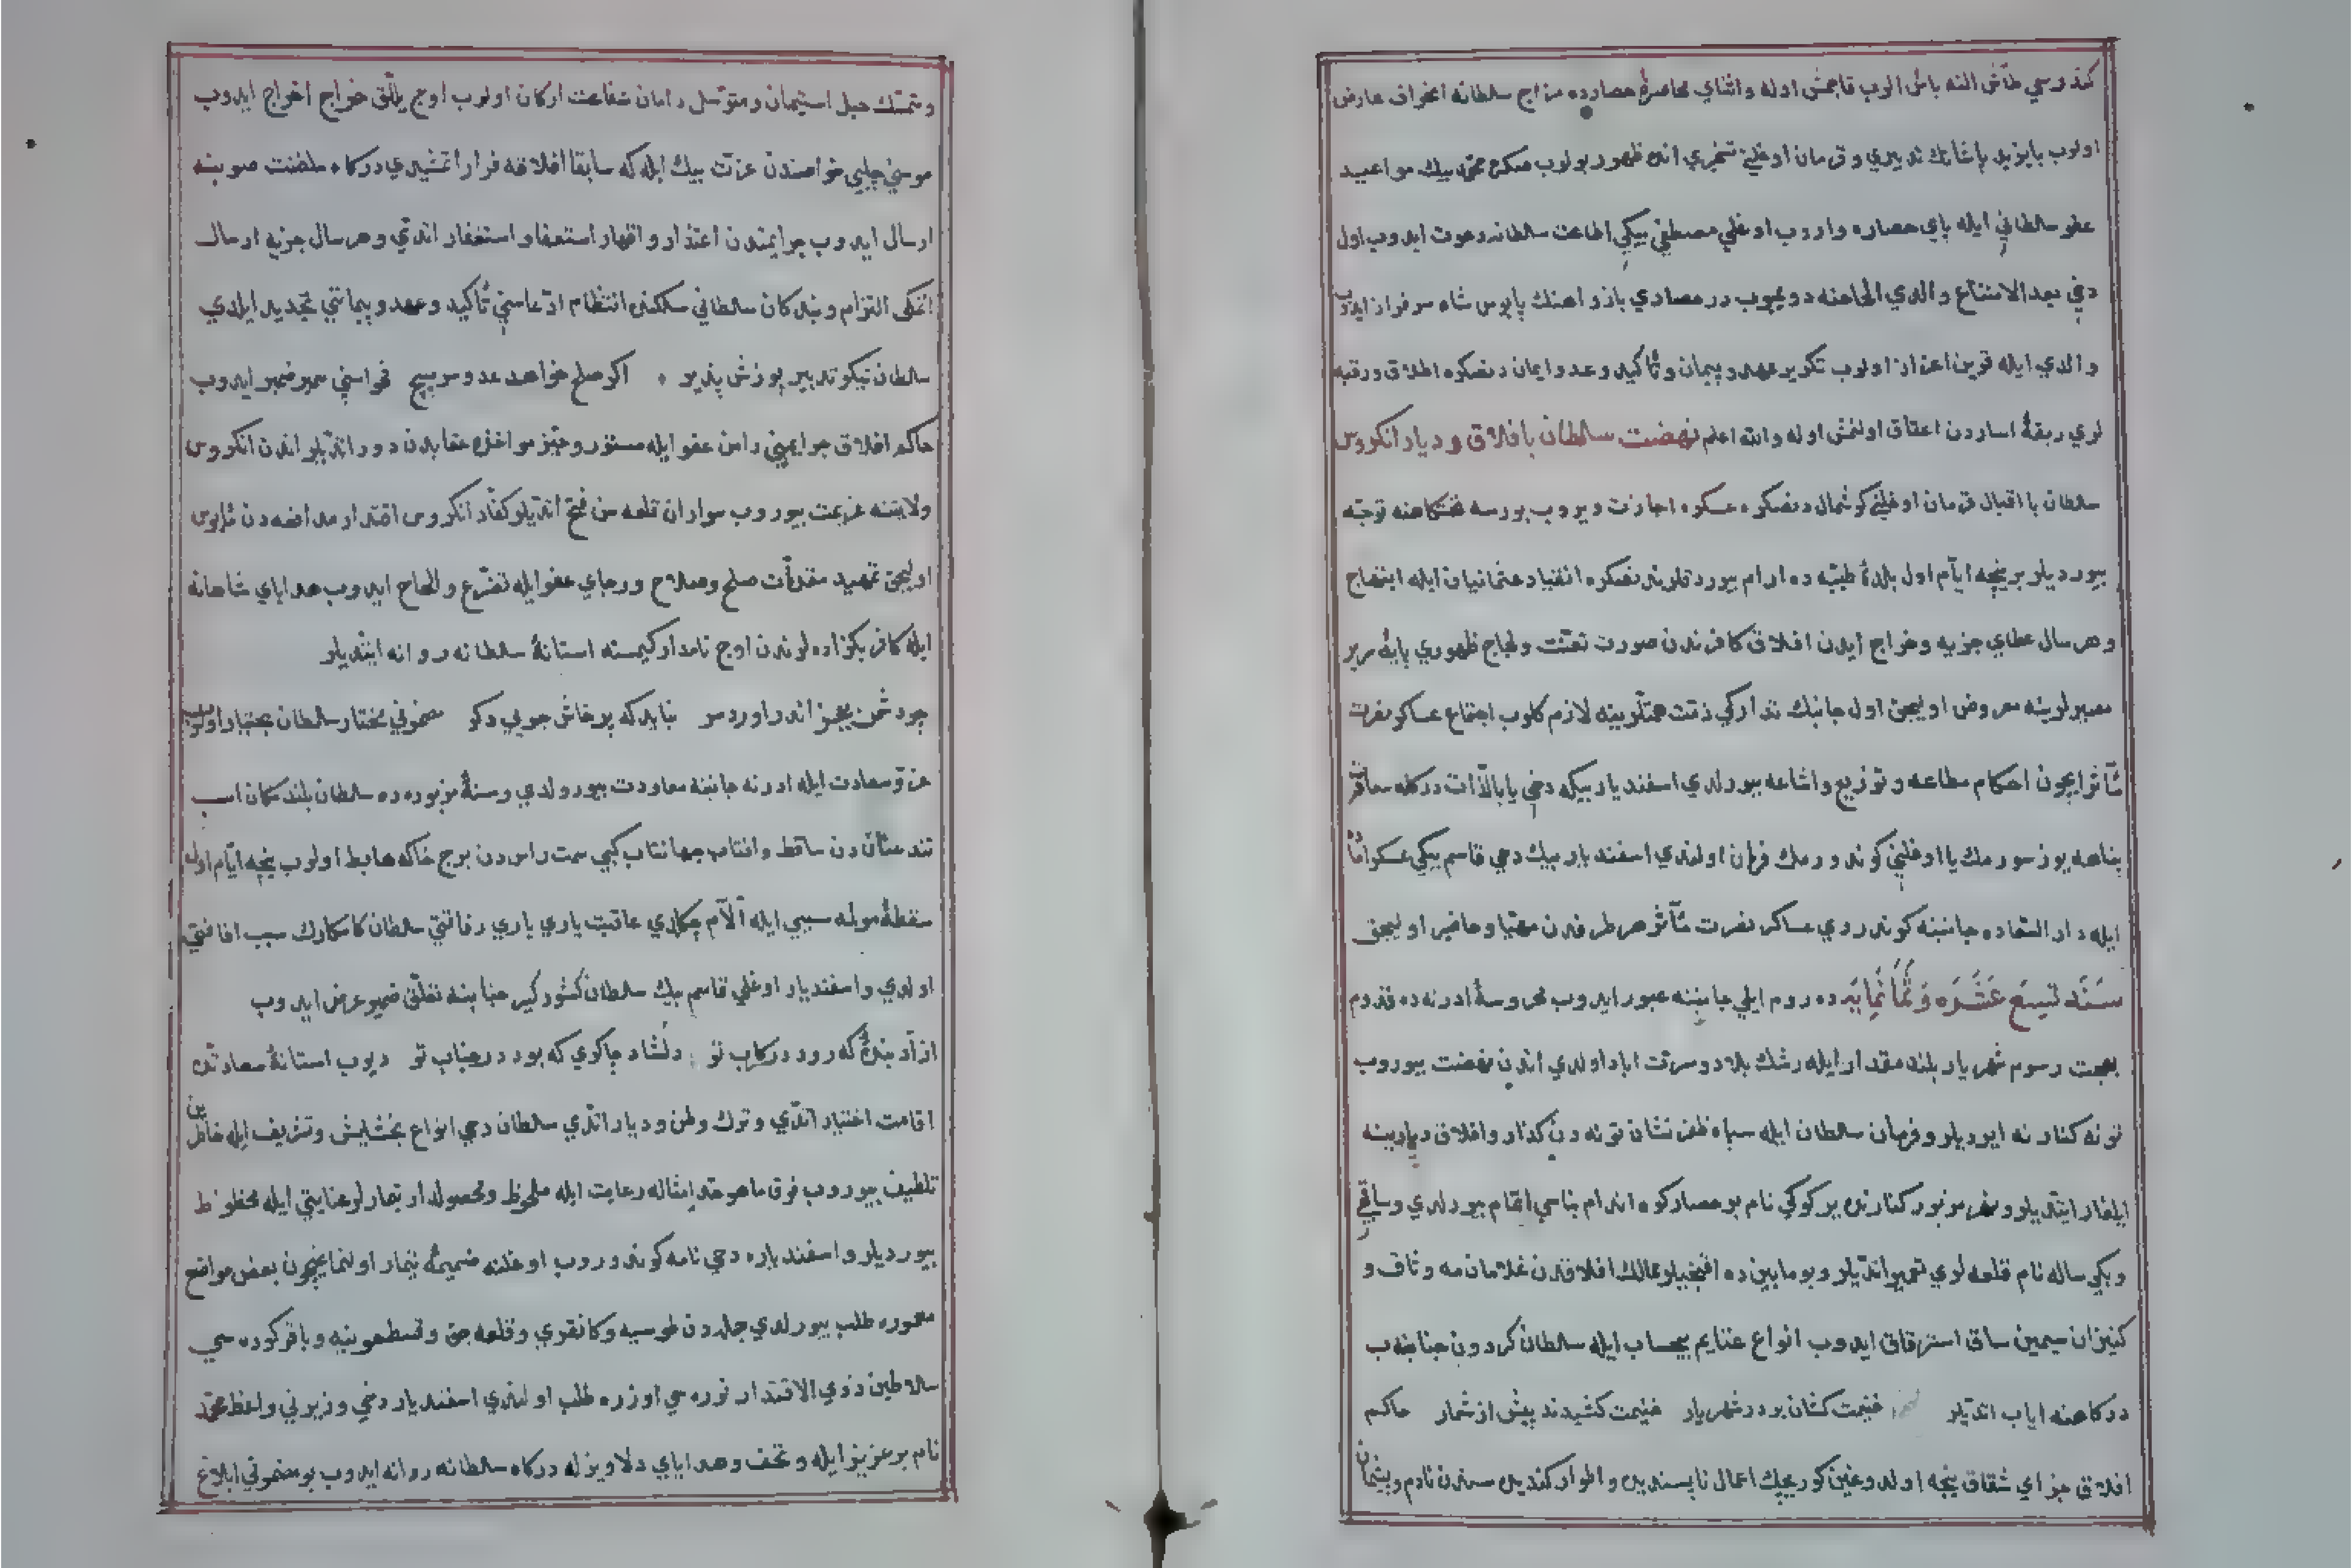 كندرسي طاش النه باش الوب قاچمش اوله واثناي محاصرۀ حصارده مزاج سلطانه انحراف عارض
اولوب بايزيد پاشانك تدبيري وقرمان اوغلي تسخيري اندن ظهور بولوب صكره محمد بيك مواعيد
عفو سلطاني ايله پاي حصاره واروب اوغلي مصطفى بيكي اطاعت سلطانه دعوت ايدوب اول
دخي بعد الامتناع والدي الحاحنه دويميوب در حصاري باز و اهنك پابوس شاه سرفراز ايدوب
والدي ايله قرين اعزاز اولوب تكرير عهد و پيمان و تأكيد وعد و ايمان دنصكره اطلاق و رقبه
لري ربقۀ اساردن اعتاق اولنمش اوله والله اعلم نهضت سلطان بافلاق و ديار انكروس
سلطان با اقبال قرمان اوغلني كوشمال دنصكره عسكره اجازت ديروب بورسه تختكاهنه توجه
بيورديلر بر نيچه ايام اول بلدۀ طيبه ده ارام بيوردقلرندنصكره انقياد عثمانيان ايله ابتهاج
وهر سال عطاي جزيه وخراج ايدن افلاق كافرندن صورت تعنت ولجاج ظهوري پايۀ سرير
مصيرلرينه معروض اوليجق اول جانبك تداركي ذمت همتلرينه لازم كلوب اجتماع عساكر نصرت
مآثر ايچون احكام مطاعه وتوزيع واشاعه بيورلدي اسفنديار بيكه دخي يا بالذات دركه معالي
پناهه يوز سورمك يا اوغلني كوندرمك فرمان اولندي اسفنديار بيك دخي قاسم بيكي عسكر
ايله دار السعاده جانبنه كوندردي عساكر نصرت مآثر هر طرفدن مهيا وحاضر اوليجق
سنه تسع عشره وثمانمايه ده روم ايلي جانبنه عبور ايدوب محروسۀ ادرنه ده قدوم
بهجت رسوم شهريار بلند مقدار ايله رشك بلاد ومسرت اباد اولدي اندن نهضت بيوروب
تونه كنارنه ايرديلر وفرمان سلطان ايله سپاه ظفر نشان تونه دن كذار وافلاق ديارينه
ايلغار ايتديلر ونهر مزبور كنارنده ير كوكي نام بر حصار كوه اندام بناسي اتمام بيورلدي وساقجي
ويكي ساله نام قلعه لري تعمير اتديلر وبو مابين ده اقنجيلر ممالك افلاقدن غلامان مه وثاق و
كنيزان سيمين ساق استرقاق ايدوب انواع غنايم بيحساب ايله سلطان كردون جنابنه
دركاهنه اياب اتديلر غنيمت كشان بر در شهريار غنيمت كشيدند بيش از شمار حاكم
افلاق جزاي شقاق نيجه اولدوغين كوريجك اعمال ناپسنديده واطوار كنديده سندن نادم وپشيمان
ومتمسك حبل استيمان ومتوسل دامان شفاعت اركان اولوب اوچ ييللق خراج اخراج ايدوب
موسي چلبي خواصندن عزت بيك ايله كه سابقا افلاقه فرار اتمشيدي دركاه سلطنت صوبنه
ارسال ايدوب جرايمندن اعتذار واظهار استعفا و استغفار اتدي وهر سال جزيه ارسال
اتمكي التزام وبندكان سلطاني سلكنده انتظام ادعاسني تأكيد وعهد وپيمانني تجديد ايلدي
سلطان نيكو تدبير پوزش پذير ٭ اكر صلح خواهد عدو سر مپيچ فحواسني سمير ضمير ايدوب
حاكم افلاق جرايميني دامن عفو ايله مستور وحيز مواخذه عقابدن دور اتديلر اندن انكروس
ولايتنه عزيمت بيوروب سواران قلعه سن فتح اتديلر كفار انكروس اقتدار مدافعه دن مأيوس
اوليجق تمهيد مقدمات صلح وصلاح ورجاي عفو ايله تضرع والحاح ايدوب هداياي شاهانه
ايله كافر بكزاده لرندن اوچ نامدار كيمسنه استانۀ سلطانه روانه ايتديلر
چو دشمن بعجز اندر اورد سر نبايد كه پرخاش جويي دكر مضموني مختار سلطان بختيار اولوب
عز وسعادت ايله ادرنه جانبنه معاودت بيورولدي وسنۀ مزبوره ده سلطان بلند مكان اسب
تند عنان دن ساقط وافتاب جهانتاب كبي سمت راس دن برج خاكه هابط اولوب نيچه ايام اول
سقطۀ موله سببي ايله آلام چكلدي عاقبت ياري باري رفاقتي سلطان كامكارك سبب افاقتي
اولدي واسفنديار اوغلي قاسم بيك سلطان كشوركير جنابينه تعلق ضمير عرض ايدوب
ازاد بندۀ كه رود در ركاب تو دلشاد چاكري كه بود در جناب تو ديوب استانۀ سعادتده
اقامت اختيار اتدي وترك وطن وديار اتدي سلطان دخي انواع بخشايش وتشريف ايله خاطرين
تلطيف بيوروب فوق ماهو حد امثاله رعايت ايله ملحوظ ومحصولدار تيمارلر عنايتي ايله محظوظ
بيورديلر واسفندياره دخي نامه كوندروب اوغلنه ضميمۀ تيمار اولنماغيچون بعض مواضع
معموره طلب بيورلدي جملدن طوسيه وكانقري وقلعه جق وقسطمونيه وباقر كوره سي
سلاطين ذوي الاقتدار توره سي اوزره طلب اولندي اسفنديار دخي وزيرني واعظ محمد
نام بر عزيز ايله وتحف وهداياي دلاويزله دركاه سلطانه روانه ايدوب بو مضموني ابلاغ